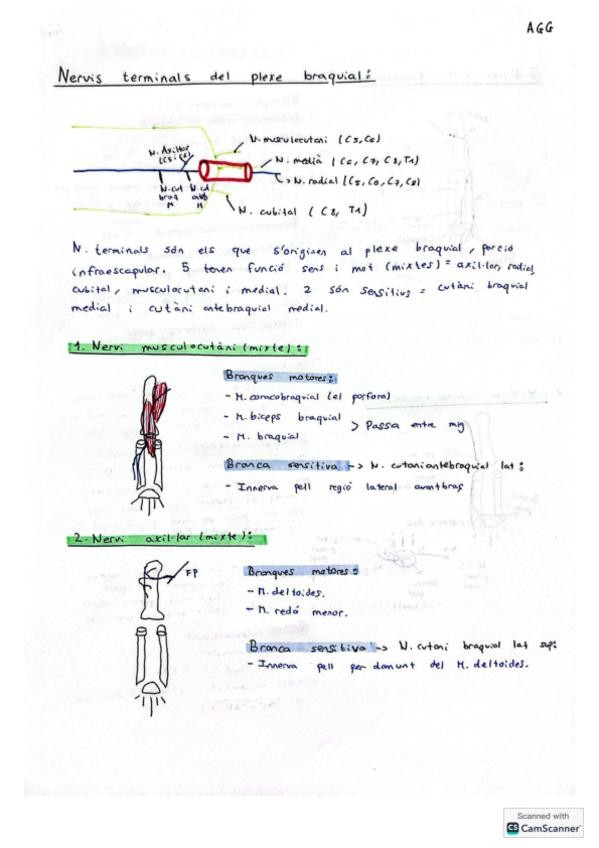 AGG
Nervis terminals del plexe braquial:
N. Axil·lar
(C5, C6)
N. musculocutani (C5, C6)
N. medià (C6, C7, C8, T1)
N. radial (C5, C6, C7, C8)
N. cut
braq
M
N. cut
M
N. cubital (C8, T1)
N. terminals són els que s'originen al plexe braquial, porció
infraescapular. 5 tenen funció sens i mot (mixtes) = axil·lar, radial,
cubital, musculocutani i medial. 2 són sensitius = cutàni braquial
medial i cutàni antebraquial medial.
1. Nervi musculocutàni (mixte):
Branques motores:
- M. coracobraquial (el perfora)
- M. biceps braquial
- M. braquial
> Passa entre mig
Branca sensitiva -> N. cutani antebraquial lat:
- Innerva pell regió lateral avantbraç
2. Nervi axil·lar (mixte):
FP
Branques motores:
- M. deltoides.
- M. redó menor.
Branca sensitiva -> N. cutani braquial lat sup:
- Innerva pell per damunt del M. deltoides.
Scanned with
CS CamScanner